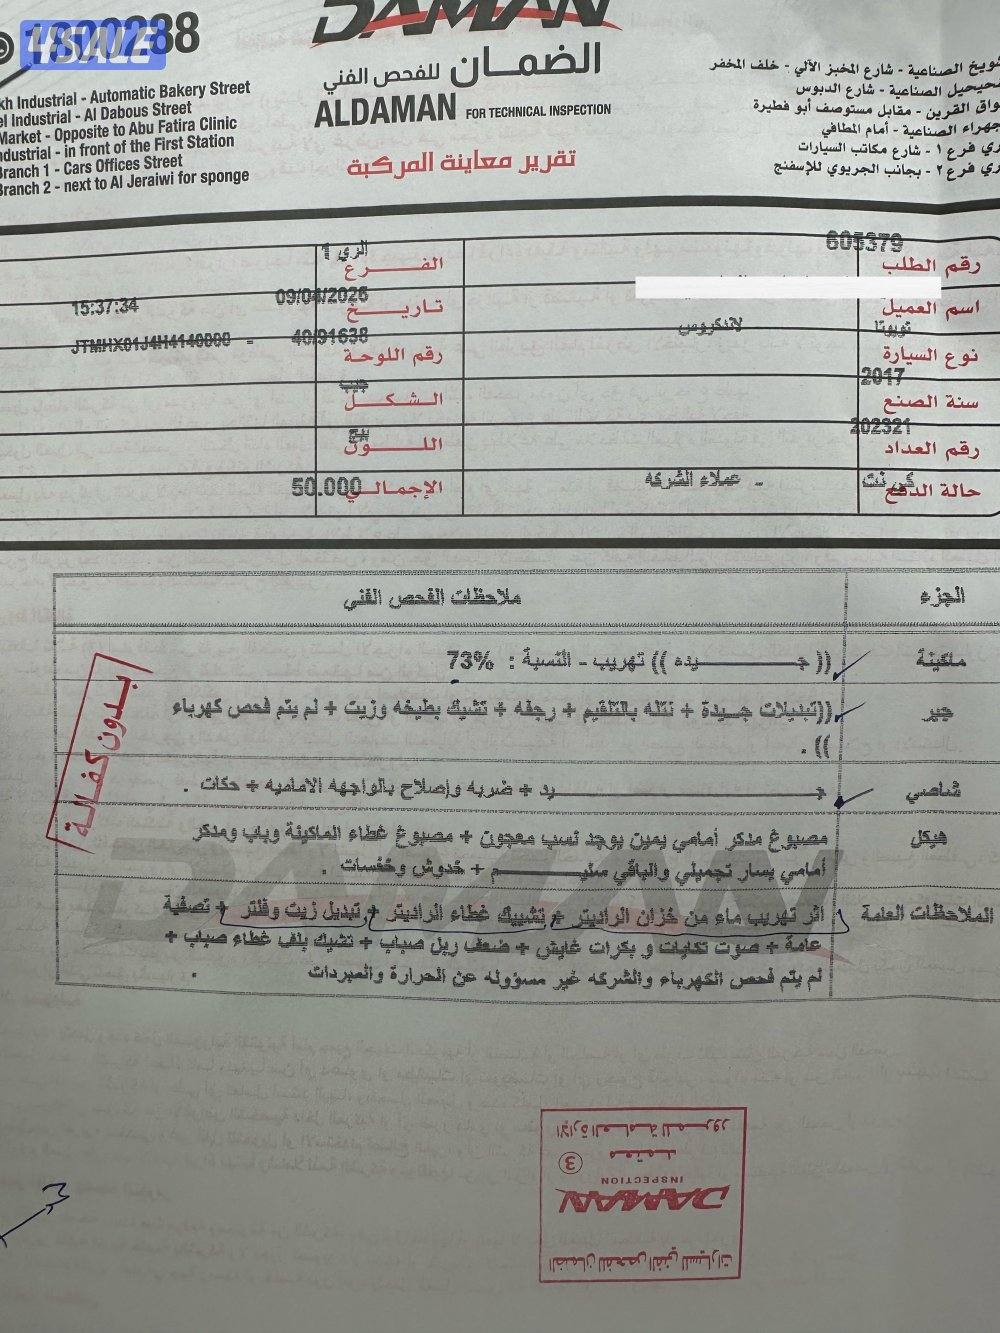 1820288
4SALE
DAMAN
الضمان للفحص الفني
ALDAMAN FOR TECHNICAL INSPECTION
تقرير معاينة المركبة
kh Industrial - Automatic Bakery Street
el Industrial - Al Dabous Street
Market - Opposite to Abu Fatira Clinic
ndustrial - in front of the First Station
Branch 1 - Cars Offices Street
Branch 2 - next to Al Jeraiwi for sponge
شويخ الصناعية - شارع المخبز الآلي - خلف المخفر
حيحيل الصناعية - شارع الدبوس
واق القرين - مقابل مستوصف أبو فطيرة
جهراء الصناعية - أمام المطافي
ري فرع ١ - شارع مكاتب السيارات
ري فرع ٢ - بجانب الجريوي للإسفنج
رقم الطلب 605379 الفــرع الري 1
اسم العميل تاريـــخ 09/04/2026 15:37:34
نوع السيارة تويوتا لاندكروس رقم اللوحة 40/91638 - JTMHX01J4H4140000
سنة الصنع 2017 الــشـكــل جيب
رقم العداد 202321 اللــــون بيج
حالة الدفع كي نت - عملاء الشركه الإجمـالـي 50.000
الجزء ملاحظات الفحص الفني
ماكينة (( جـــــيده )) تهريب - النسبة : 73%
جير ((تبديلات جــيدة + نتله بالتلقيم + رجفه + تشيك بطيخه وزيت + لم يتم فحص كهرباء
)) .
شاصي جـــــــــــيد + ضربه وإصلاح بالواجهه الاماميه + حكات .
هيكل مصبوغ مدكر أمامي يمين يوجد نسب معجون + مصبوغ غطاء الماكينة وباب ومدكر
أمامي يسار تجميلي والباقي سليـــــم + خدوش وخفسات .
الملاحظات العامة اثر تهريب ماء من خزان الراديتر + تشييك غطاء الراديتر + تبديل زيت وفلتر + تصفية
عامة + صوت تكايات و بكرات غايش + ضعف ريل صباب + تشيك بلف غطاء صباب +
لم يتم فحص الكهرباء والشركه غير مسؤوله عن الحرارة والمبردات .
بـدون كفـالـة
الإدارة العـامـة للمـرور
معتمـد
3
INSPECTION
DAMAN
الضمان للفحص الفني للسيارات